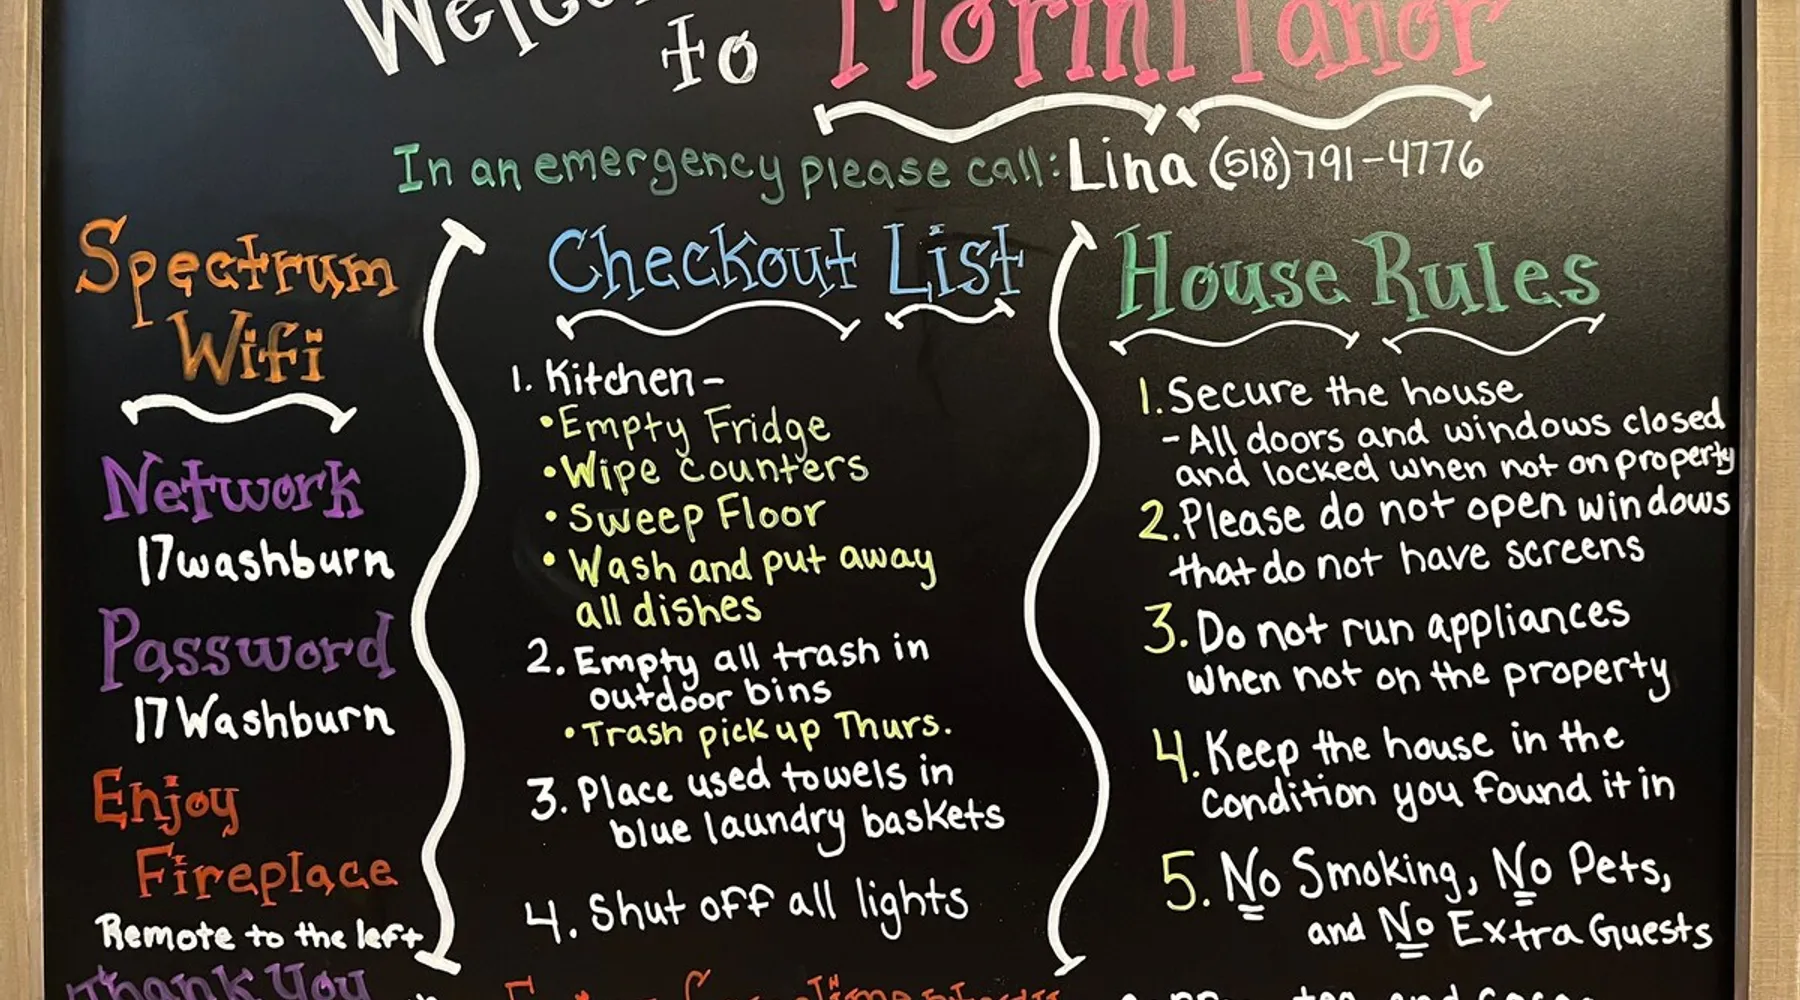 Welcome
to Morin Manor
In an emergency please call: Lina (518)791-4776
Spectrum
Wifi
Network
17washburn
Password
17Washburn
Enjoy
Fireplace
Remote to the left
Thank You
Checkout List
1. Kitchen-
•Empty Fridge
•Wipe counters
•Sweep Floor
•Wash and put away
all dishes
2. Empty all trash in
outdoor bins
•Trash pick up Thurs.
3. Place used towels in
blue laundry baskets
4. Shut off all lights
House Rules
1. Secure the house
-All doors and windows closed
and locked when not on property
2. Please do not open windows
that do not have screens
3. Do not run appliances
when not on the property
4. Keep the house in the
condition you found it in
5. No Smoking, No Pets,
and No Extra Guests